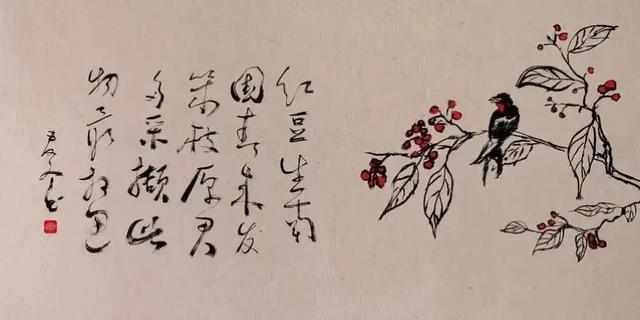 红豆生南
國春来发
幾枝愿君
多采撷此
物最相思